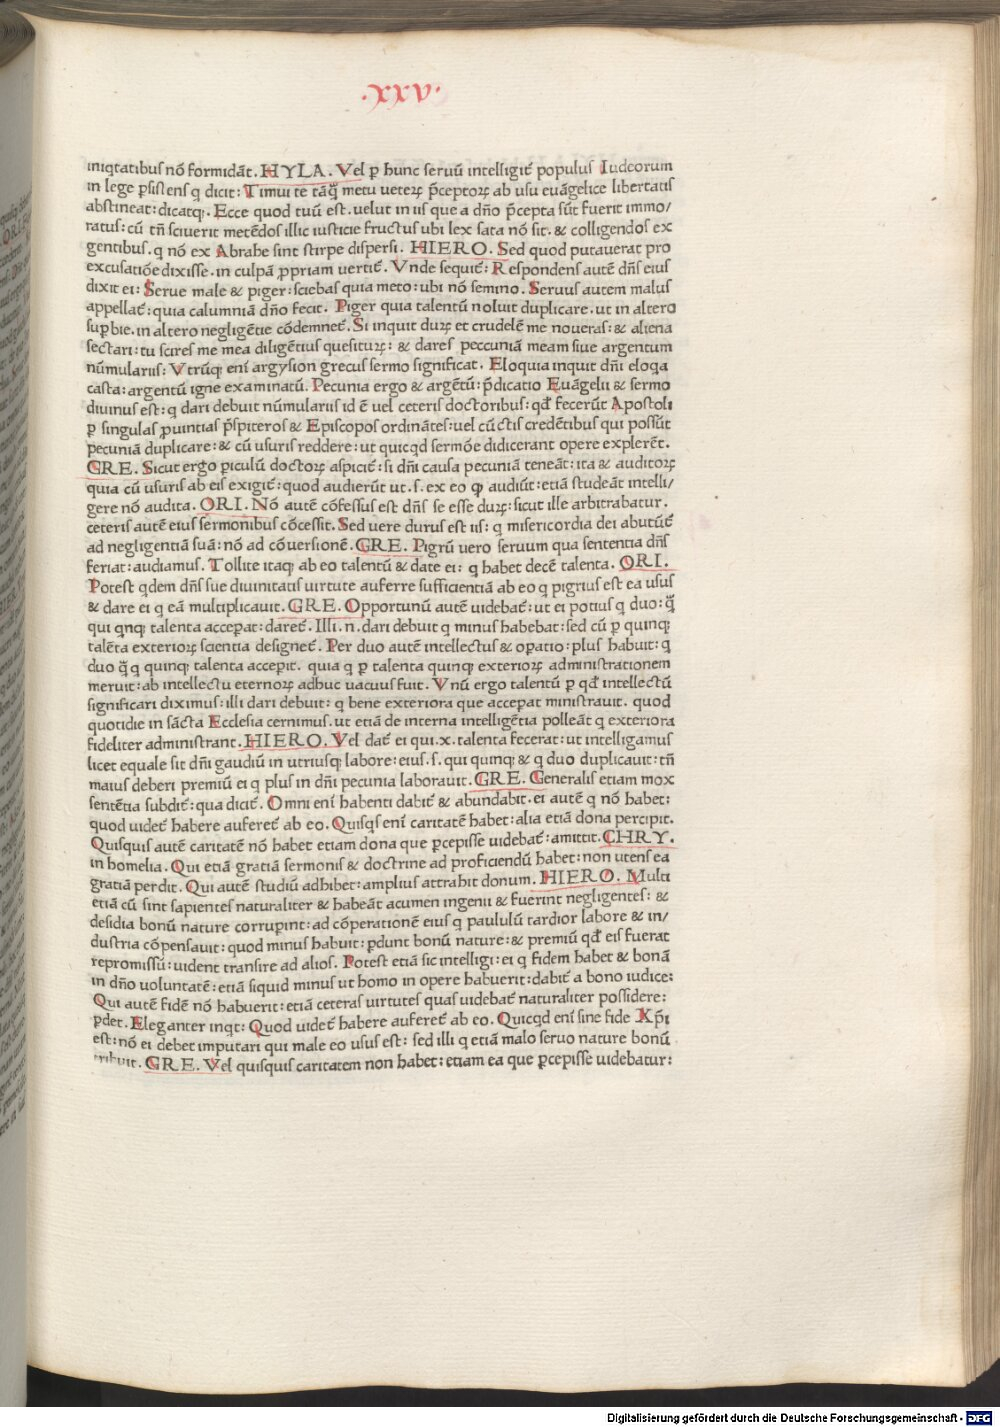 .XXV.
iniqtatibus nō formidāt. HYLA. Vel p hunc seruū intelligit᷑ populus Iudeorum
in lege ꝑsistens q dicit: Timui te tāq̄ metu ueteꝝ p̄ceptoꝝ ab usu euāgelice libertatis
abstineat: dicatq;. Ecce quod tuū est. uelut in iis que a dn̄o p̄cepta sūt fuerit immo/
ratus: cū tn̄ sciuerit metēdos illic iusticie fructus ubi lex sata nō sit. & colligendos ex
gentibus. q nō ex Abrahe sint stirpe dispersi. HIERO. Sed quod putauerat pro
excusatiōe dixisse. in culpā ꝓpriam uertit᷑. Vnde sequit᷑: Respondens autē dn̄s eius
dixit ei: Serue male & piger: sciebas quia meto: ubi nō semino. Seruus autem malus
appellat᷑: quia calumniā dn̄o fecit. Piger quia talentū noluit duplicare. ut in altero
sup̄bie. in altero negligētie cōdemnet᷑. Si inquit duꝝ et crudelē me noueras: & aliena
sectari: tu scires me mea diligētius quesituꝝ: & dares peccuniā meam siue argentum
nūmulariis: Vtrūq; eni᷑ argysion grecus sermo significat. Eloquia inquit dn̄i eloqa
casta: argentū igne examinatū. Pecunia ergo & argētū: p̄dicatio Euāgelii & sermo
diuinus est: q dari debuit nūmulariis id ē uel ceteris doctoribus: qd̄ fecerūt Apostoli
ꝑ singulas ꝓuintias p̄spiteros & Episcopos ordinātes: uel cūctis credētibus qui possūt
pecuniā duplicare: & cū usuris reddere: ut quicqd sermōe didicerant opere explerēt.
GRE. Sicut ergo ꝑiculū doctoꝝ aspicit᷑: si dn̄i causa pecuniā teneāt: ita & auditoꝝ
quia cū usuris ab eis exigit᷑: quod audierūt ut. s. ex eo ꝙ audiūt: etiā studeāt intelli/
gere nō audita. ORI. Nō autē cōfessus est dn̄s se esse duꝝ: sicut ille arbitrabatur.
ceteris autē eius sermonibus cōcessit. Sed uere durus est iis: q misericordia dei abutūt᷑
ad negligentiā suā: nō ad cōuersionē. GRE. Pigrū uero seruum qua sententia dn̄s
feriat: audiamus. Tollite itaq; ab eo talentū & date ei: q habet decē talenta. ORI.
Potest qdem dn̄s sue diuinitatis uirtute auferre sufficientiā ab eo q pigrius est ea usus
& dare ei q eā multiplicauit. GRE. Opportunū autē uidebat᷑: ut ei potius q duo: q̄
qui qnq; talenta acceꝑat: daret᷑. Illi. n. dari debuit q minus habebat: sed cū ꝑ quinq;
talēta exterioꝝ scientia designet᷑. Per duo autē intellectus & oꝑatio: plus habuit: q
duo q̄ q quinq; talenta accepit. quia q ꝑ talenta quinq; exterioꝝ administrationem
meruit: ab intellectu eternoꝝ adhuc uacuus fuit. Vnū ergo talentū ꝑ qd̄ intellectū
significari diximus: illi dari debuit: q bene exteriora que acceꝑat ministrauit. quod
quotidie in sācta Ecclesia cernimus. ut etiā de interna intelligētia polleāt q exteriora
fideliter administrant. HIERO. Vel dat᷑ ei qui. x. talenta fecerat: ut intelligamus
licet equale sit dn̄i gaudiū in utriusq; labore: eius. s. qui quinq; & q duo duplicauit: tn̄
maius deberi premiū ei q plus in dn̄i pecunia laborauit. GRE. Generalis etiam mox
sentētia subdit᷑: qua dicit᷑. Omni eni᷑ habenti dabit᷑ & abundabit. ei autē q nō habet:
quod uidet᷑ habere auferet᷑ ab eo. Quisqs eni᷑ caritatē habet: alia etiā dona percipit.
Quisquis autē caritatē nō habet etiam dona que ꝑcepisse uidebat᷑: amittit. CHRY.
in homelia. Qui etiā gratiā sermonis & doctrine ad proficiendū habet: non utens ea
gratiā perdit. Qui autē studiū adhibet: amplius attrahit donum. HIERO. Multi
etiā cū sint sapientes naturaliter & habeāt acumen ingenii & fuerint negligentes: &
desidia bonū nature corrupint: ad cōperationē eius q paululū tardior labore & in/
dustria cōpensauit: quod minus habuit: ꝑdunt bonū nature: & premiū qd̄ eis fuerat
repromissū: uident transire ad alios. Potest etiā sic intelligi: ei q fidem habet & bonā
in dn̄o uoluntatē: etiā siquid minus ut homo in opere habuerit: dabit᷑ a bono iudice:
Qui autē fidē nō habuerit: etiā ceteras uirtutes quas uidebat᷑ naturaliter possidere:
ꝑdet. Eleganter inqt: Quod uidet᷑ habere auferet᷑ ab eo. Quicqd eni᷑ sine fide Xp̄i
est: nō ei debet imputari qui male eo usus est: sed illi q etiā malo seruo nature bonū
tribuit. GRE. Vel quisquis caritatem non habet: etiam ea que ꝑcepisse uidebatur:
Digitalisierung gefördert durch die Deutsche Forschungsgemeinschaft - DFG